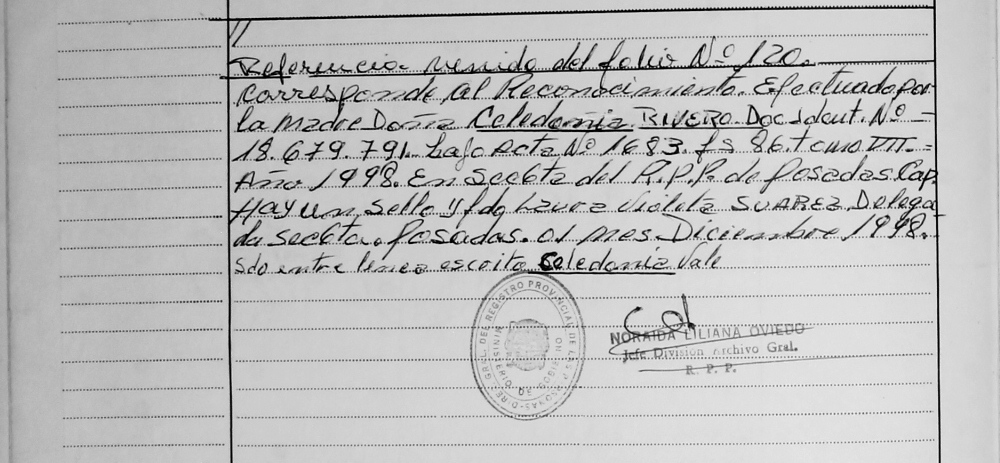 //
Referencia venido del folio Nº 120.
Corresponde al Reconocimiento. Efectuado por
la Madre Doña Celedonia RIVERO. Doc. Ident. Nº -
18.679.791. bajo Acta Nº 1683. fs 86. tomo VII.=
Año 1998. En Seccta del R.P.P. de Posadas Cap.
Hay un Sello y fdo Laura Violeta SUAREZ Delega
da Seccta. Posadas. 01 mes Diciembre 1998.
Sdo entre linea escrito Celedonia Vale
DIREC. GRAL. DEL REGISTRO PROVINCIAL DE LAS PERSONAS
NORAIDA LILIANA OVIEDO
Jefe División Archivo Gral.
R. P. P.